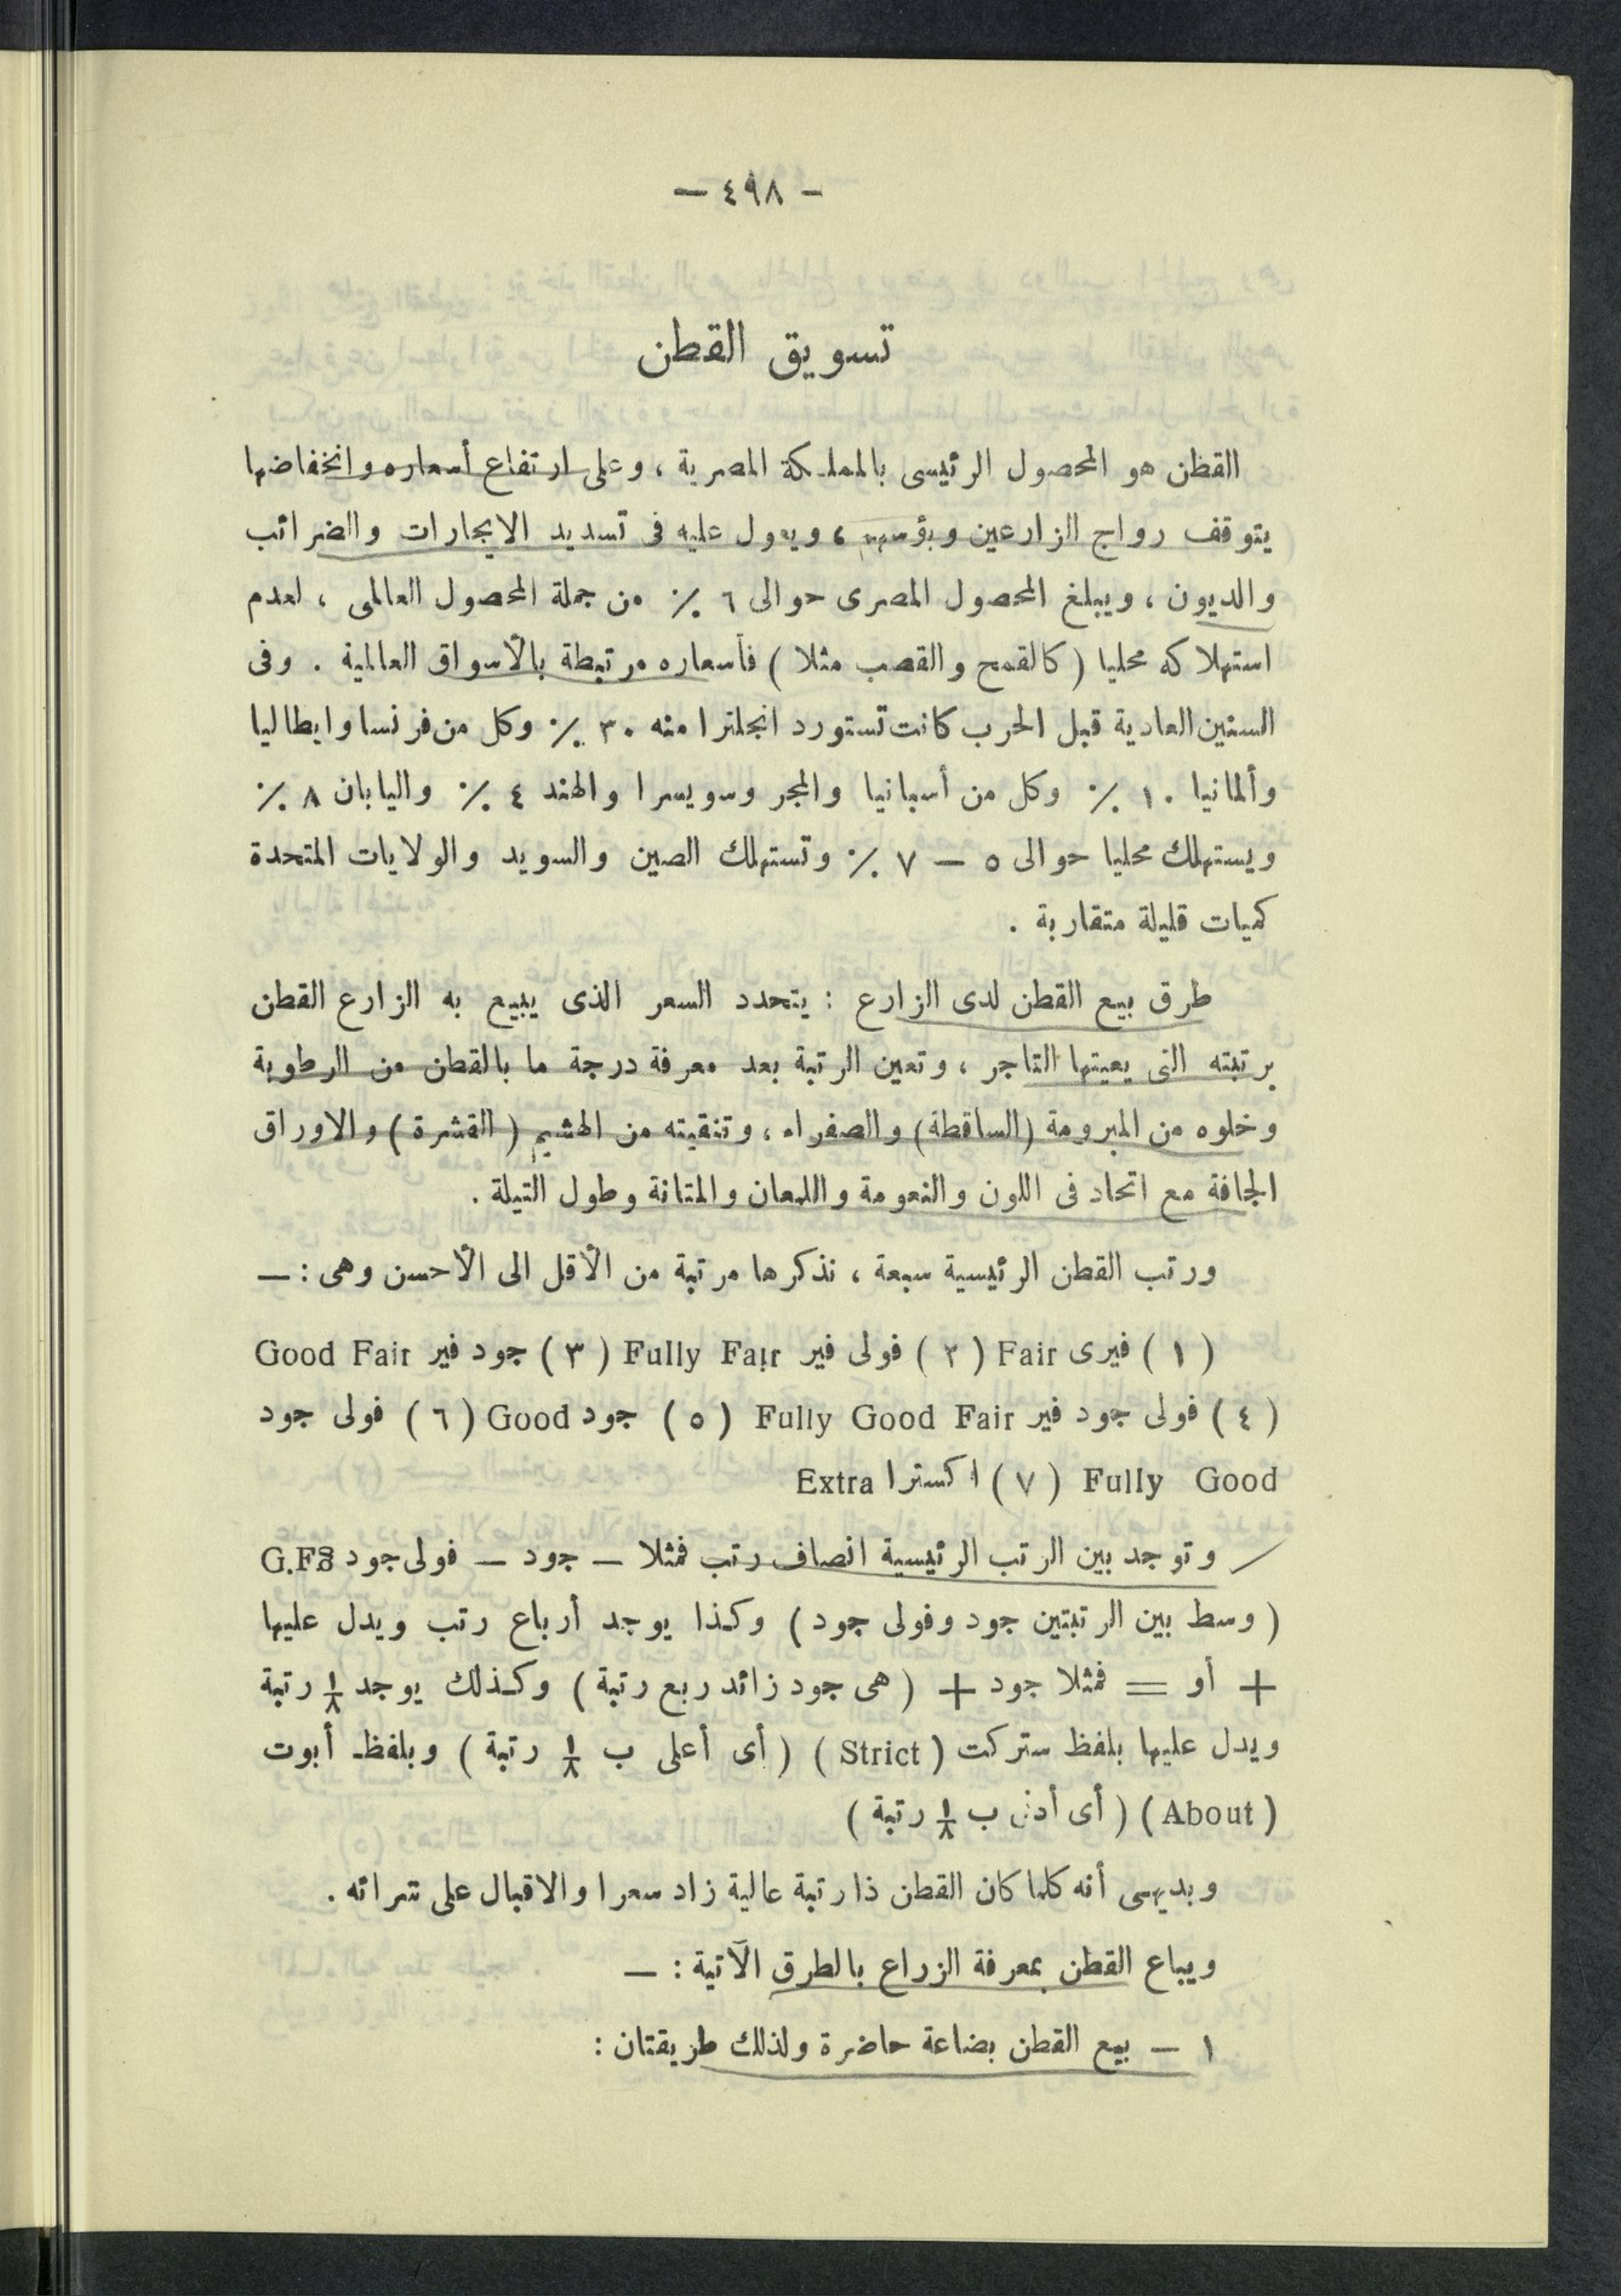 — ٤٩٨ —
تسويق القطن
القطن هو المحصول الرئيسى بالمملكة المصرية ، وعلى ارتفاع أسعاره وانخفاضها
يتوقف رواج الزارعين وبؤسهم ، ويعول عليه فى تسديد الايجارات والضرائب
والديون ، ويبلغ المحصول المصرى حوالى ٦ ٪ من جملة المحصول العالمى ، لعدم
استهلاكه محليا ( كالقمح والقصب مثلا ) فأسعاره مرتبطة بالأسواق العالمية . وفى
السنين العادية قبل الحرب كانت تستورد انجلترا منه ٣٠ ٪ وكل من فرنسا وايطاليا
وألمانيا ١٠ ٪ وكل من أسبانيا والمجر وسويسرا والهند ٤ ٪ واليابان ٨ ٪
ويستهلك محليا حوالى ٥ — ٧ ٪ وتستهلك الصين والسويد والولايات المتحدة
كميات قليلة متقاربة .
طرق بيع القطن لدى الزارع : يتحدد السعر الذى يبيع به الزارع القطن
برتبته التى يعينها التاجر ، وتعين الرتبة بعد معرفة درجة ما بالقطن من الرطوبة
وخلوه من المبرومة (الساقطة) والصفراء ، وتنقيته من الهشيم ( القشرة ) والاوراق
الجافة مع اتحاد فى اللون والنعومة واللمعان والمتانة وطول التيلة .
ورتب القطن الرئيسية سبعة ، نذكرها مرتبة من الأقل الى الأحسن وهى : —
( ١ ) فيرى Fair ( ٢ ) فولى فير Fully Fair ( ٣ ) جود فير Good Fair
( ٤ ) فولى جود فير Fully Good Fair ( ٥ ) جود Good ( ٦ ) فولى جود
Fully Good ( ٧ ) اكسترا Extra
وتوجد بين الرتب الرئيسية انصاف رتب فمثلا — جود — فولى جود G.F
( وسط بين الرتبتين جود وفولى جود ) وكذا يوجد أرباع رتب ويدل عليها
+ أو = فمثلا جود + ( هى جود زائد ربع رتبة ) وكذلك يوجد ١/٨ رتبة
ويدل عليها بلفظ ستركت ( Strict ) ( أى أعلى ب ١/٨ رتبة ) وبلفظ أبوت
( About ) ( أى أدنى ب ١/٨ رتبة )
وبديهى أنه كلما كان القطن ذا رتبة عالية زاد سعرا والاقبال على شرائه .
ويباع القطن بمعرفة الزراع بالطرق الآتية : —
١ — بيع القطن بضاعة حاضرة ولذلك طريقتان :